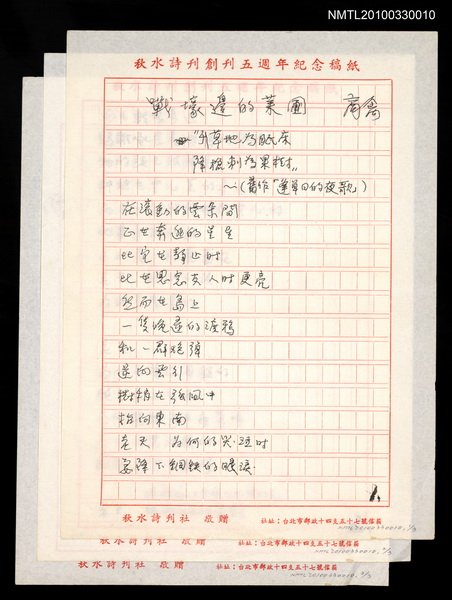 NMTL20100330010
秋水詩刊創刊五週年紀念稿紙
戰壕邊的菜圃 商禽
草地為眠床
降 刺為果樹
～(舊作"逢單日的夜歌)
在滾動的雲朵間
正在奔逃的星星
比它在靜止時
比在思念友人時更亮
然而在島上
一隻晚還的渡鴉
和一群炮彈
逆向雲引
樹梢在強風中
指向東南
老天 為何的哭泣時
要降下鋼鐵的眼淚
1.
秋水詩刊社 敬贈 社址:台北市郵政十四支五十七號信箱
NMTL20100330010, 1/3
秋水詩刊社 敬贈 社址:台北市郵政十四支五十七號信箱
NMTL20100330010, 2/3
秋水詩刊社 敬贈 社址:台北市郵政十四支五十七號信箱
NMTL20100330010, 3/3